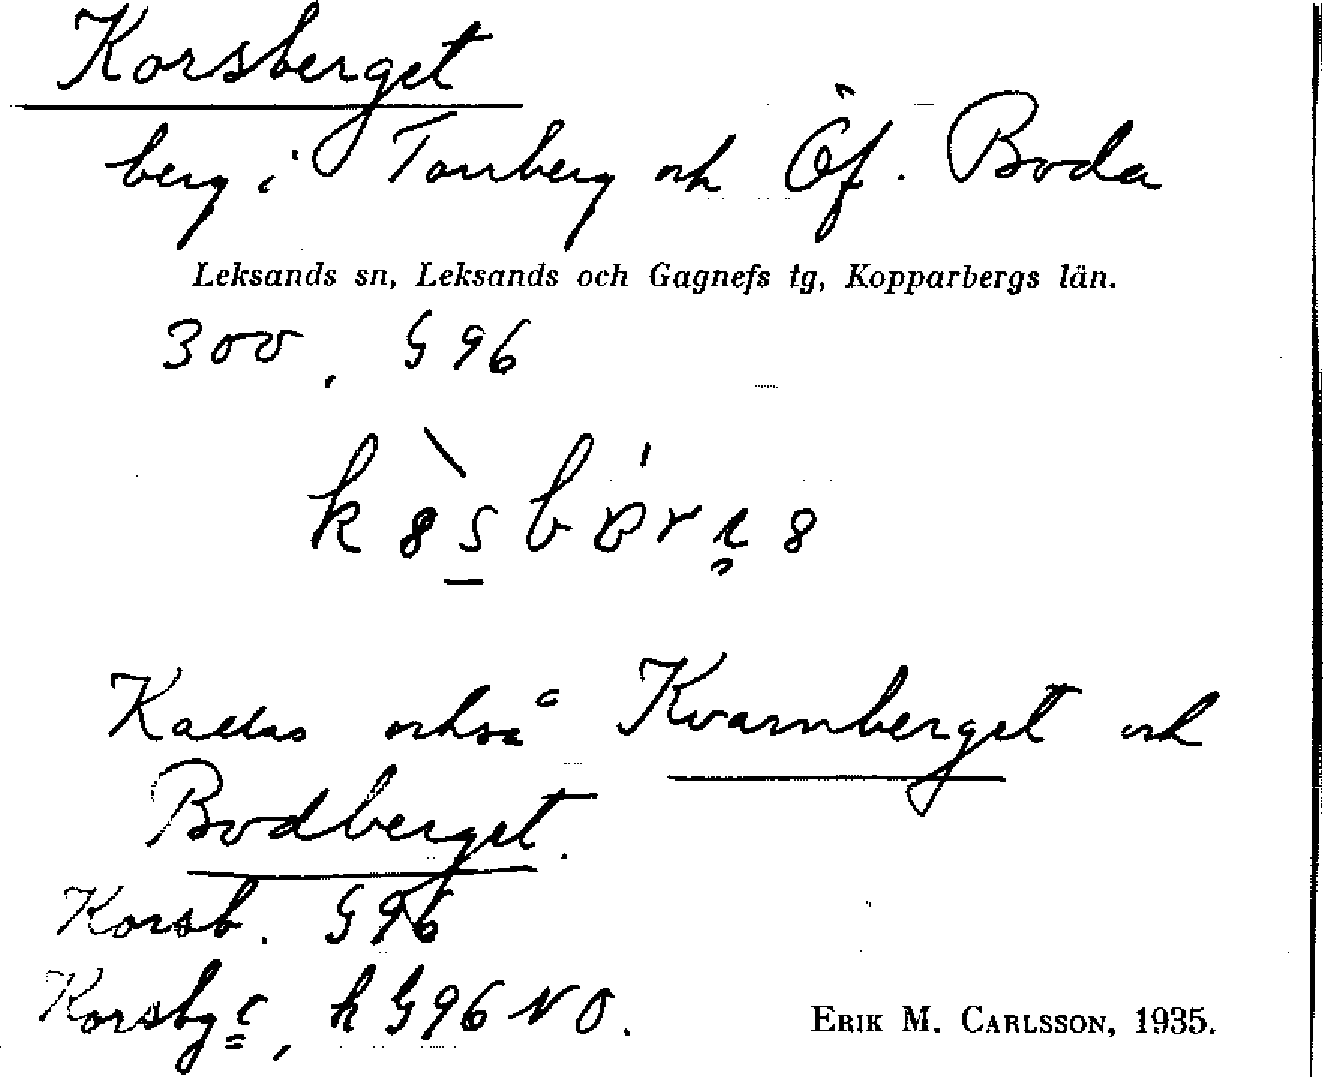 Korsberget
berg i Torrberg och Öf. Boda
Leksands sn, Leksands och Gagnefs tg, Kopparbergs län.
300, G 96
Kallas också Kvarnberget och
Bodberget.
Korsb. G 96
Korsbg et, h G 96 NO.
ERIK M. CARLSSON, 1935.